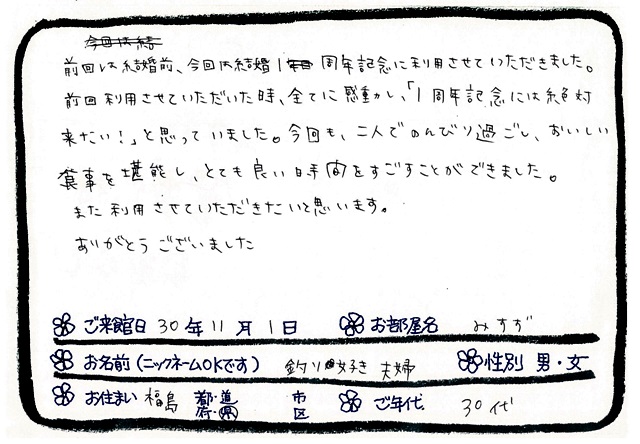 今回は結
前回は結婚前、今回は結婚1周年記念に利用させていただきました。
前回利用させていただいた時、全てに感動し、「1周年記念には絶対
来たい！」と思っていました。今回も、二人でのんびり過ごし、おいしい
食事を堪能し、とても良い時間をすごすことができました。
また利用させていただきたいと思います。
ありがとうございました
ご来館日 30年11月1日 お部屋名 みすず
お名前（ニックネームOKです） 釣り好き夫婦 性別 男・女
お住まい 福島 都・道・府・県 市 区 ご年代 30代